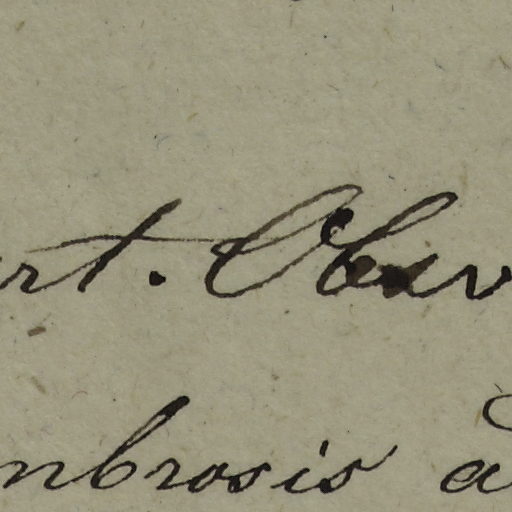 rt. Observ
mbrosis a